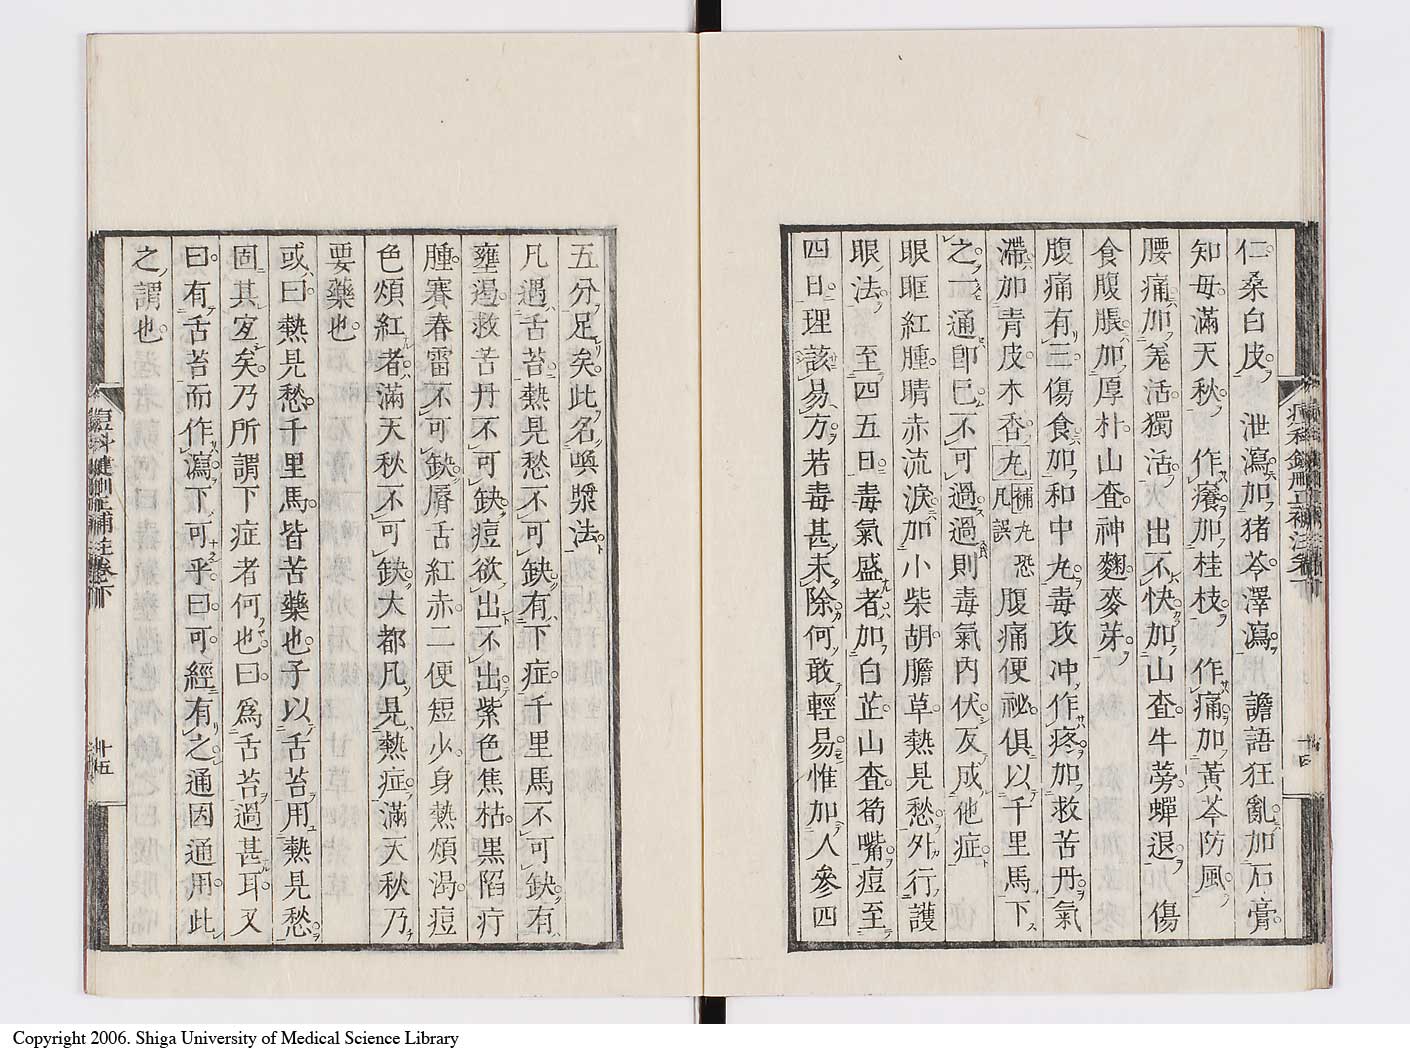 仁桑白皮 泄瀉加猪苓澤瀉 譫語狂亂加石膏
知毋滿天秋 作癢加桂枝 作痛加黃芩防風
腰痛加羗活獨活 出不快加山査牛蒡蟬退 傷
食腹脹加厚朴山査神麴麥芽
腹痛有三傷食加和中九毒攻冲作疼加救苦丹氣
滯加青皮木香九補九恐凡誤腹痛便祕俱以千里馬下
之一通卽已不可過過則毒氣內伏反成他症
眼眶紅腫睛赤流淚加小柴胡膽草熱見愁外行護
眼法 至四五日毒氣盛者加白芷山査荀嘴痘至
四日理該易方若毒甚未除何敢輕易惟加人參四
五分足矣此名喚漿法
凡遇舌苔熱見愁不可缺有下症千里馬不可缺有
壅遏救苦丹不可缺痘欲出不出紫色焦枯黒陷疔
腫賽春雷不可缺脣舌紅赤二便短少身熱煩渴痘
色煩紅者滿天秋不可缺大都凡見熱症滿天秋乃
要藥也
或曰熱見愁千里馬皆苦藥也子以舌苔用熱見愁
固其宜矣乃所謂下症者何也曰爲舌苔過甚耳又
曰有舌苔而作瀉下可乎曰可經有之通因通用此
之謂也
痘科鍵刪正補注卷下
十五